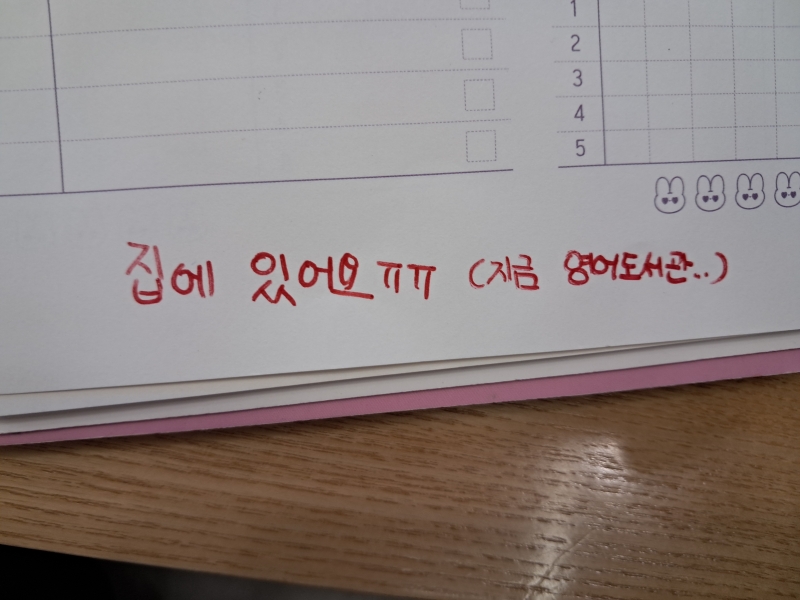 1
2
3
4
5
집에 있어요 ㅠㅠ (지금 영어도서관..)